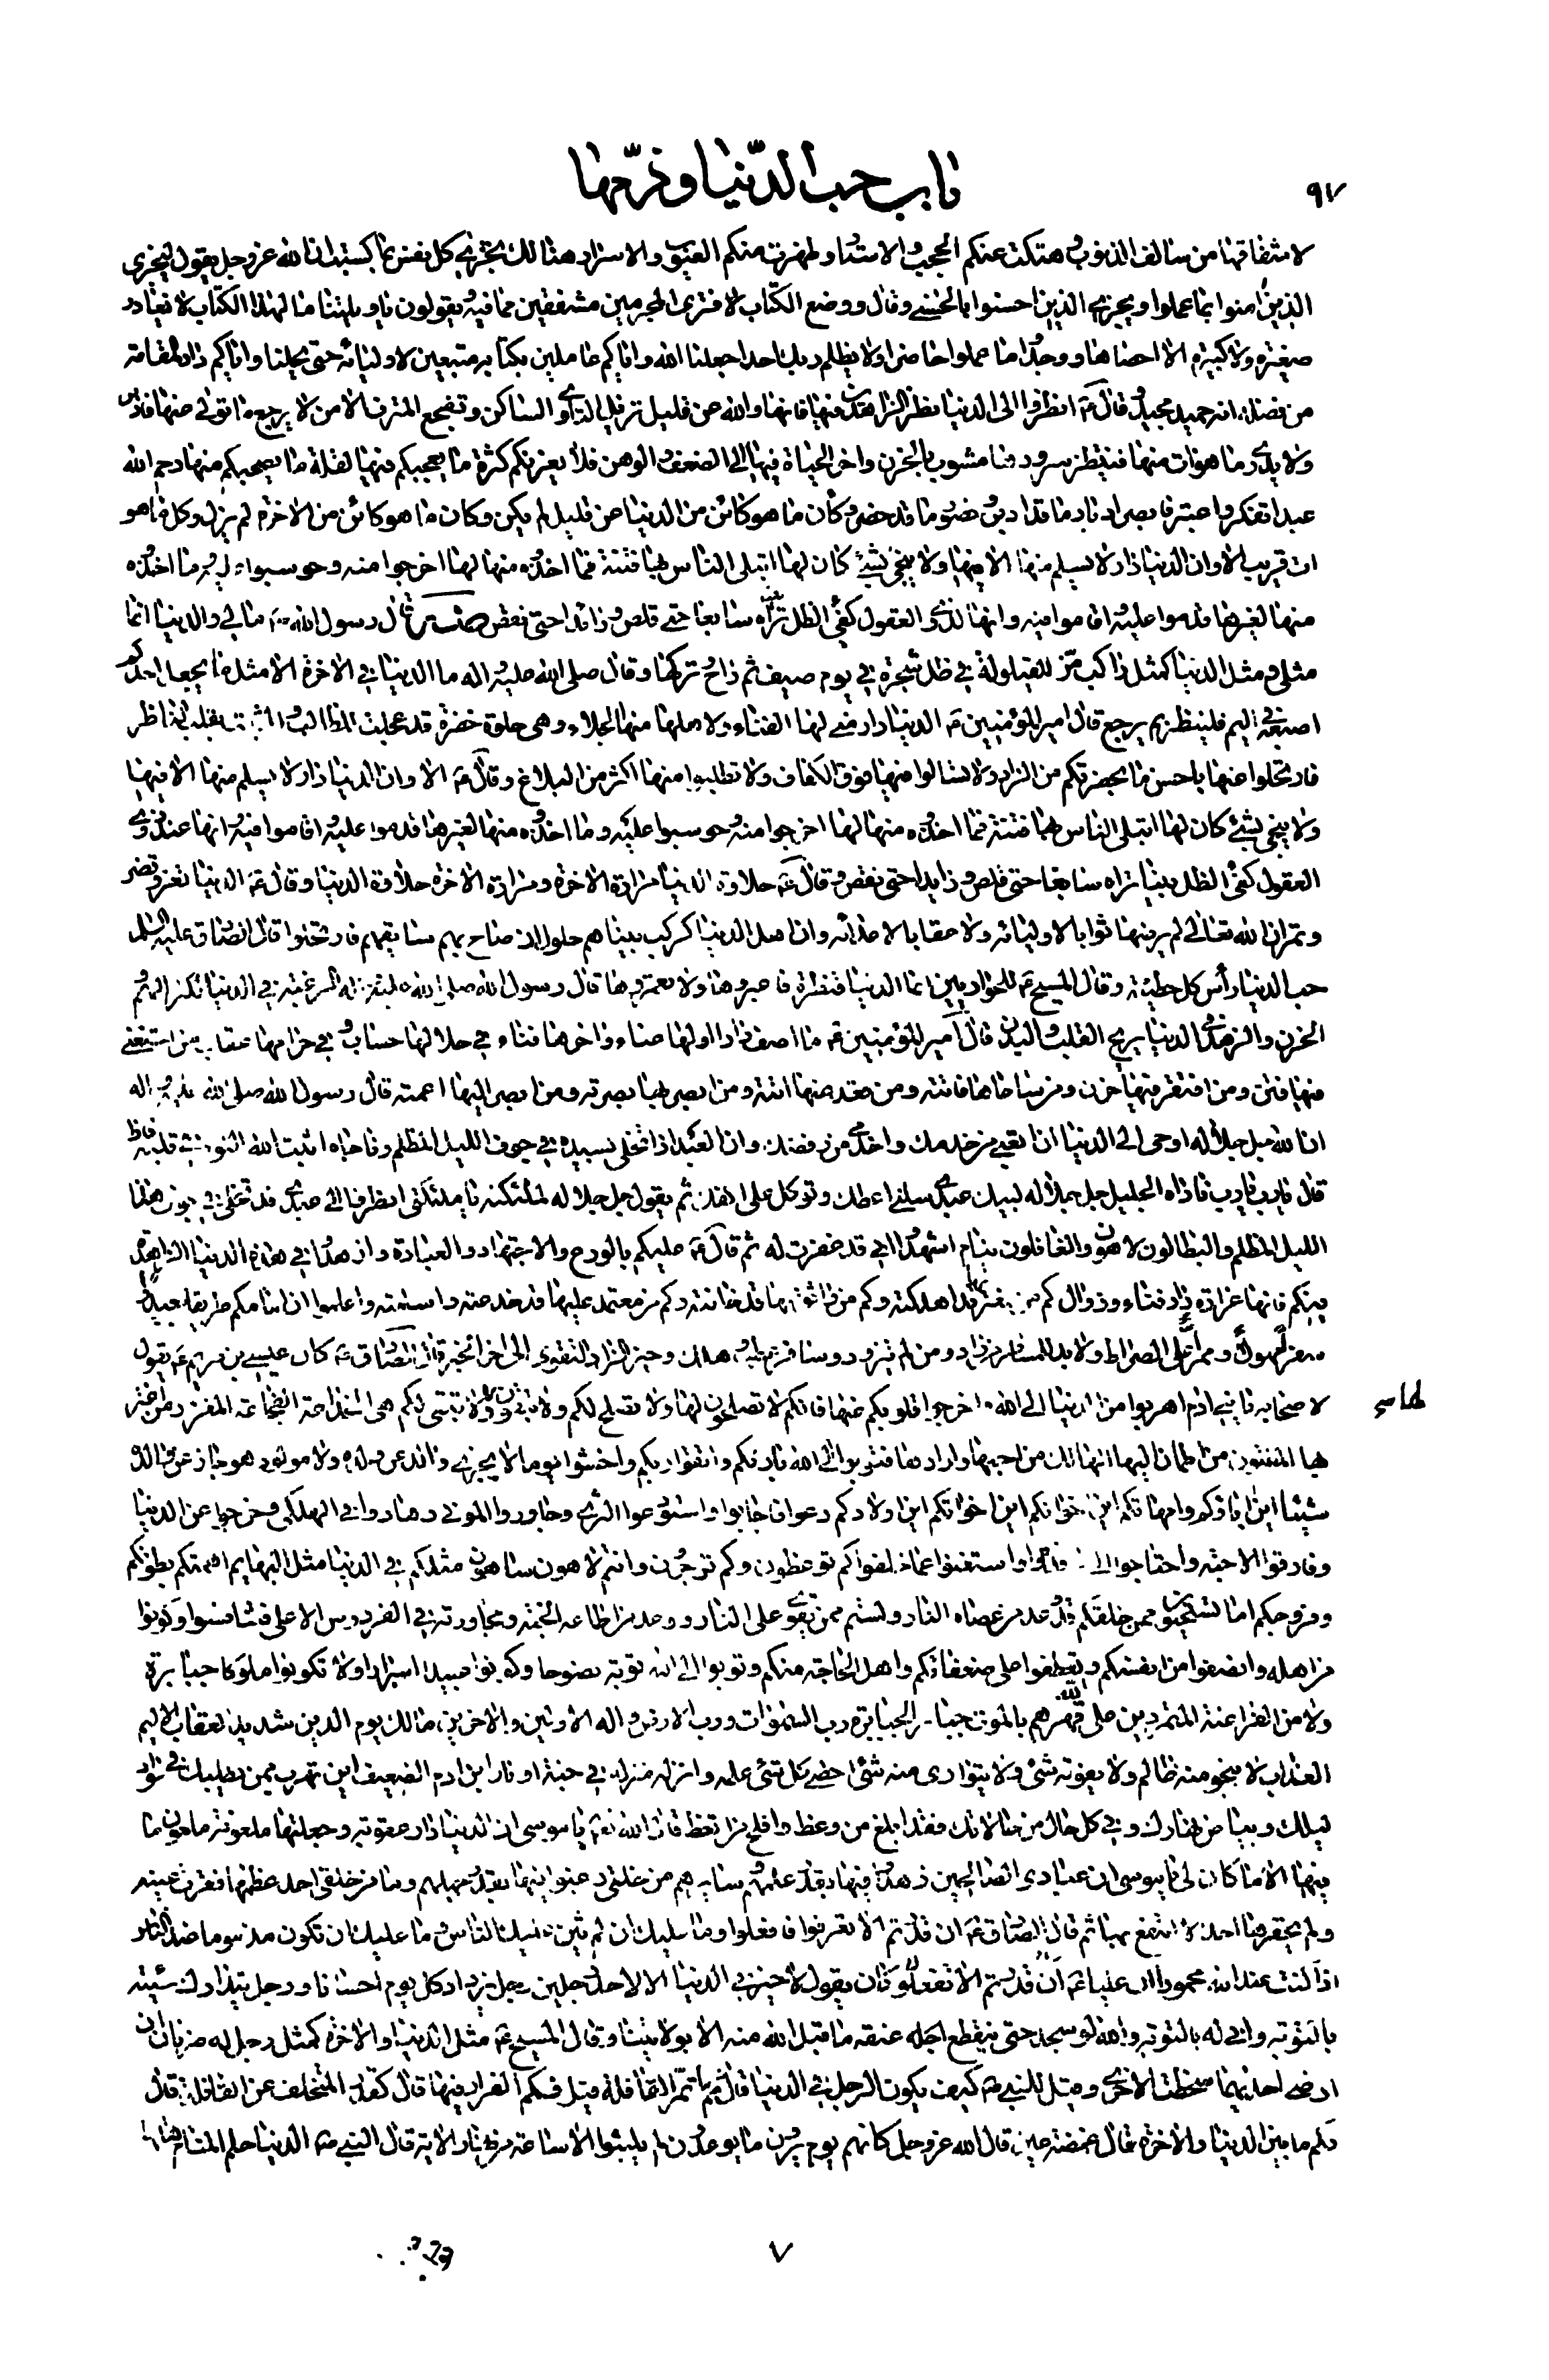 ٩٧
باب حب الدّنيا وذمّها
لاشفاقها من سالف الذنوب هتكت عنكم الحجب والاستار وظهرت منكم العيوب والاسرار هنالك تجزى كل نفس بما كسبت ان الله عز وجل يقول ليجزى
الذين امنوا بما عملوا ويجزى الذين احسنوا بالحسنى وقال ووضع الكتاب لا فترى المجرمين مشفقين مما فيه يقولون ياويلتنا ما لهذا الكتاب لا يغادر
صغيرة ولا كبيرة الا احصاها ووجدوا ما عملوا حاضرا ولا يظلم ربك احدا جعلنا الله واياكم عاملين بكتابه متبعين لاوليائه حتى يحلنا واياكم دار المقامة
من فضله انه حميد مجيد وقال ع انظروا الى الدنيا نظر الزاهدين فيها فانها والله عن قليل تزيل الثاوى الساكن وتفجع المترف الامن لا يرجع ما تولى منها فادبر
ولا يدرى ما هو ات منها فينتظر سرورها مشوب بالحزن واخر الحياة فيها الى الضعف والوهن فلا يغرنكم كثرة ما يعجبكم فيها لقلة ما يصحبكم منها رحم الله
عبدا تفكر واعتبر فابصر ادبار ما قد ادبر وحضور ما قد حضر وكأن ما هو كائن من الدنيا عن قليل لم يكن وكان ما هو كائن من الاخرة لم يزل وكل ما هو
ات قريب الا وان الدنيا دار لا يسلم منها الا فيها ولا ينجى بشئ كان لها ابتلى الناس بها فتنة فما اخذوه منها لها اخرجوا منه وحوسبوا عليه وما اخذوه
منها لغيرها قدموا عليه اقاموا فيه وانها لذوى العقول كفئ الظل تراه سابغا حتى قلص وزائدا حتى نقص قال رسول الله ص مالى والدنيا انما
مثلى ومثل الدنيا كمثل راكب مرّ للقيلولة فى ظل شجرة فى يوم صيف ثم راح وتركها وقال صلى الله عليه واله ما الدنيا فى الاخرة الا مثل ما يجعل احدكم
اصبعه فى اليم فلينظر بم يرجع قال امير المؤمنين ع الدنيا دار منى لها الفناء ولاهلها منها الجلاء وهى حلوة خضرة قد عجلت للطالب والتبست بقلب الناظر
فارتحلوا عنها باحسن ما بحضرتكم من الزاد ولا تسالوا فيها فوق الكفاف ولا تطلبوا منها اكثر من البلاغ وقال ع الا وان الدنيا دار لا يسلم منها الا فيها
ولا ينجى بشئ كان لها ابتلى الناس بها فتنة فما اخذوه منها لها اخرجوا منه وحوسبوا عليه وما اخذوه منها لغيرها قدموا عليه اقاموا فيه وانها عند ذوى
العقول كفئ الظل بينا تراه سابغا حتى قلص وزايدا حتى نقص وقال ع حلاوة الدنيا مرارة الاخرة ومرارة الاخرة حلاوة الدنيا وقال ع الدنيا تغر وتضر
وتمر ان الله تعالى لم يرضها ثوابا لاوليائه ولا عقابا لاعدائه وان اهل الدنيا كركب بيناهم حلوا اذ صاح بهم سائقهم فارتحلوا قال الصادق عليه السلم
حب الدنيا رأس كل خطيئة وقال المسيح ع للحواريين انما الدنيا قنطرة فاعبروها ولا تعمروها قال رسول الله صلى الله عليه واله الرغبة فى الدنيا تكثر الهم و
الحزن والزهد فى الدنيا يريح القلب والبدن قال امير المؤمنين ع ما اصف دارا اولها عناء واخرها فناء فى حلالها حساب وفى حرامها عقاب من استغنى
فيها فتن ومن افتقر فيها حزن ومن ساعاها فاتته ومن قعد عنها اتته ومن ابصر بها بصرته ومن ابصر اليها اعمته قال رسول الله صلى الله عليه واله
ان الله جل جلاله اوحى الى الدنيا ان اتعبى من خدمك واخدمى من رفضك وان العبد اذا تخلى بسيده فى جوف الليل المظلم وناجاه اثبت الله النور فى قلبه فاذا
قال يارب يارب ناداه الجليل جل جلاله لبيك عبدى سلنى اعطك وتوكل على اكفك ثم يقول جل جلاله لملئكته ياملئكتى انظروا الى عبدى قد تخلى فى جوف هذا
الليل المظلم والبطالون لاهون والغافلون نيام اشهدوا انى قد غفرت له ثم قال ع عليكم بالورع والاجتهاد والعبادة وازهدوا فى هذه الدنيا الزاهدة
فيكم فانها غرارة دار فناء وزوال كم من مغتر بها اهلكته وكم من واثق بها قد خانته وكم من معتمد عليها قد خدعته واسلمته واعلموا ان امامكم طريقا بعيدا
وسفرا مهولا وممرا على الصراط ولا بد للمسافر من زاد ومن لم يتزود وسافر عطب وهلك وخير الزاد التقوى الى اخر الخبر قال الصادق ع كان عيسى بن مريم ع يقول
لاصحابه يابنى ادم اهربوا من الدنيا الى الله واخرجوا قلوبكم عنها فانكم لا تصلحون لها ولا تصلح لكم ولا تبقون فيها ولا تبقى لكم هى الخداعة الفجاعة المغرور من اغتر
بها المفتون من اطمأن اليها الهالك من احبها وارادها فتوبوا الى الله بارئكم واتقوا ربكم واخشوا يوما لا يجزى والد عن ولده ولا مولود هو جاز عن والده
شيئا اين اباؤكم وامهاتكم اين اخوانكم اين اخواتكم اين اولادكم دعوا فاجابوا واستودعوا الثرى وجاوروا الموتى وصاروا فى الهلكى وخرجوا عن الدنيا
وفارقوا الاحبة واحتاجوا الى ما قدموا واستغنوا عما خلفوا كم توعظون وكم تزجرون وانتم لاهون ساهون مثلكم فى الدنيا مثل البهايم اهمتكم بطونكم
وفروجكم اما تستحيون ممن خلقكم قد وعد من عصاه النار ولستم ممن تقوى على النار ووعد من اطاعه الجنة ومجاورته فى الفردوس الاعلى فتنافسوا وكونوا
من اهله وانصفوا من انفسكم وتعطفوا على ضعفائكم واهل الحاجة منكم وتوبوا الى الله توبة نصوحا وكونوا عبيدا ابرارا ولا تكونوا ملوكا جبابرة
ولا من الفراعنة المتمردين على الله قهرهم بالموت جبار الجبابرة رب السموات ورب الارض واله الاولين والاخرين مالك يوم الدين شديد العقاب الاليم
العذاب لا ينجو منه ظالم ولا يفوته شئ ولا يتوارى منه شئ احصى كل شئ علمه وانزله منزله فى جنة او نار ابن ادم الضعيف اين تهرب ممن يطلبك فى سواد
ليلك وبياض نهارك وفى كل حال من حالاتك فقد ابلغ من وعظ وافلح من اتعظ قال الله تعا ياموسى ان الدنيا دار عقوبة وجعلتها ملعونة ملعون ما
فيها الا ما كان لى ياموسى ان عبادى الصالحين زهدوا فيها بقدر علمهم وسايرهم من خلقى رغبوا فيها بقدر جهلهم وما من خلقى احد عظمها فقرت عينه
ولم يحقرها احد الا انتفع بها ثم قال الصادق ع ان قدرتم الا تعرفوا فافعلوا وما عليك ان لم يثن عليك الناس وما عليك ان تكون مذموما عند الناس
اذا كنت عند الله محمودا ان عليا ع كان يقول لا خير فى الدنيا الا لاحد رجلين رجل يزداد كل يوم احسانا ورجل يتدارك سيئته
بالتوبة وانى له بالتوبة والله لو سجد حتى ينقطع عنقه ما قبل الله منه الا بولايتنا وقال المسيح ع مثل الدنيا والاخرة كمثل رجل له ضرتان ان
ارضى احديهما سخطت الاخرى وقيل للنبى ص كيف يكون الرجل فى الدنيا قال كما تمر القافلة قيل فكم القرار فيها قال كقدر المتخلف عن القافلة قال
فكم ما بين الدنيا والاخرة قال غمضة عين قال الله عز وجل كانهم يوم يرون ما يوعدون لم يلبثوا الا ساعة من نهار الاية قال النبى ص الدنيا حلم المنام
٧